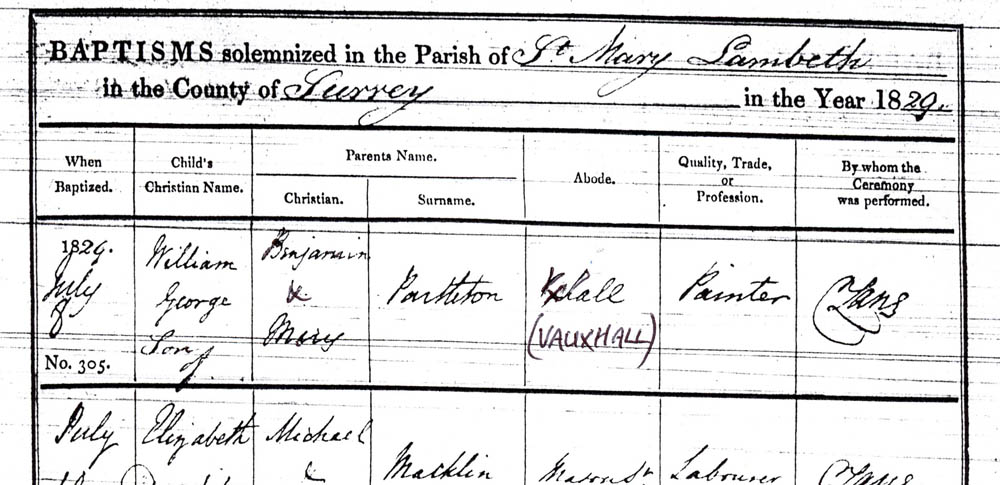 BAPTISMS solemnized in the Parish of St Mary Lambeth
in the County of Surrey in the Year 1829.
When Baptized.
Child's Christian Name.
Parents Name.
Christian.
Surname.
Abode.
Quality, Trade, or Profession.
By whom the Ceremony was performed.
1829.
July
8
No. 305.
William
George
Son of
Benjamin
&
Mary
Partleton
Xhall
(VAUXHALL)
Painter
July
Elizabeth
Michael
&
Macklin
Mason St
Labourer